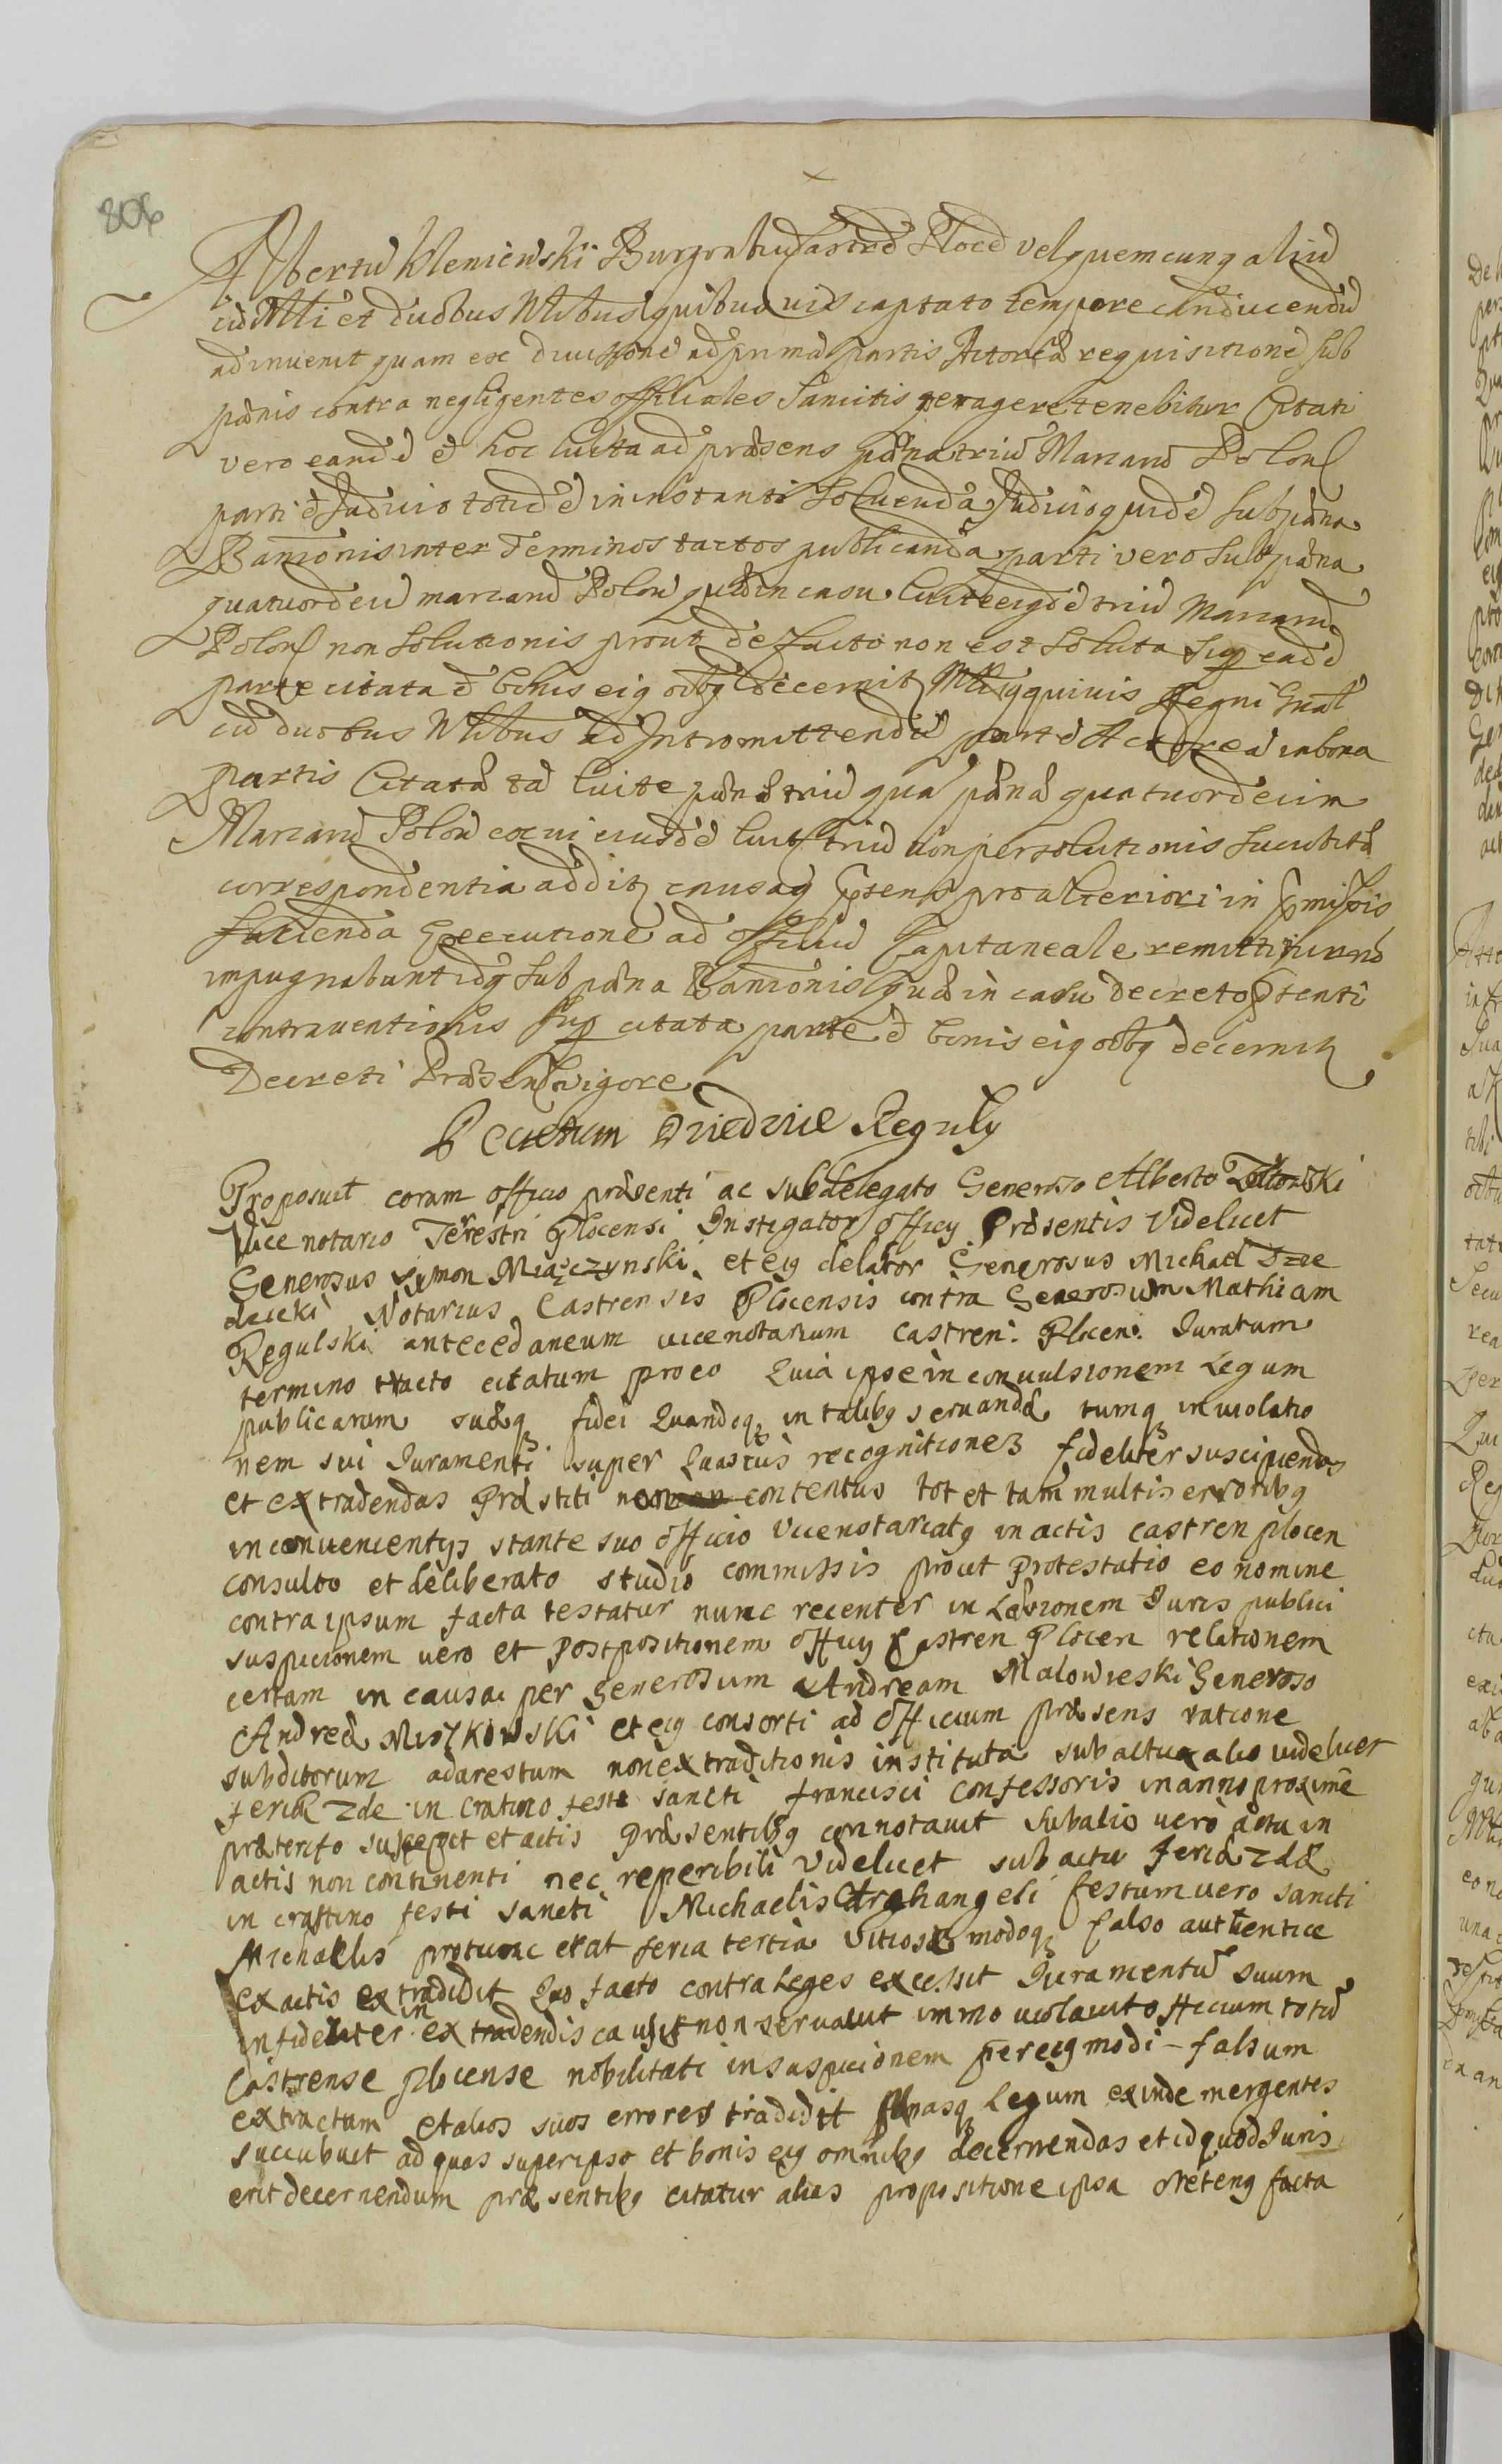 806
Albertū Kleniewski Burgrabiū Castrē Ploceē vel quemcunq aliud
cū Mli et duobus Nlibus quibus vis captato tempore conducendū
adinvenit quam ex divisione ad primā partis Actoreā requisitionē sub
pænis contra negligentes officiales sancitis peragere tenebitur Citati
vero eandē ē hoc luita ad præsens pæna triū Marcarū Polonl
parti ē Judicio totidē in instanti solvenda Judicio quidē sub pæna
Bannionis inter terminos tactos publicanda parti vero sub pæna
quatuordeci marcarū Polon quā in casu luite eiqdē triū Marcarū
Polonl non solutionis prout de facto non est soluta sup eadē
parte citata ē bonis eiq oibq decernit Mli cuiquivis Regni Gnal
cū duobus Nlibus ad Intromittendū partē Actoreā in bona
partis Citatæ tā luite pænæ triū quā pænæ quatuordecim
Marcarū Polon ex vi eiusdē luit triū non persolutionis succubitæ
correspondentia addit causaq præsens pro ulteriori in præmissis
facienda Executione ad officiū Capitaneale remittitur nō
impugnabunt idq sub pæna Bannionis quā in casu decreto præsenti
contraventionis sup citata parte ē bonis eiq oibq decernit
Decreti Præsentl vigore
Pecietum Dziedzice Reguly
Proposuit coram officio præsenti ac subdelegato Generoso Alberto Zoltowski
Vice notario Terrestri Plocensi Instigator officy Præsentis Videlicet
Generosus Symon Miączynski et eiq delator Generosus Michael Sze
deceki Notarius Castrensis Plocensis contra Generosum Mathiam
Regulski antecedaneum vicenotarium castren: Plocen: Iuratum
termino tacto citatum pro eo Quia ipse in convulsionem Legum
publicarum suæq fidei Quandoq in talibq servandæ tumq in violatio
nem sui Iuramenti super Quasvis recognitiones fideliter suscipiendas
et extradendas Præstiti non contentus tot et tam multis erroribq
inconvenientys stante suo officio Vicenotariatq in actis castren plocen
consulto et deliberato studio commissis prout Protestatio eo nomine
contra ipsum facta testatur nunc recenter in Læsionem Iuris publici
suspicionem vero et Postpositionem officy Castren Plocen relationem
certam in causa per Generosum Andream Malowieski Generoso
Andreæ Miszkowski et eiq consorti ad officium præsens ratione
subditorum ad arestum non extraditionis instituta sub actu alio videlicet
feria 2de in cratino festi sancti francisci confessoris in anno proxime
præterito suscepit et actis Præsentibq connotavit sub alio vero actu in
actis non continenti nec reperibili Videlicet sub actu feria 2dæ
in crastino festi sancti Michaelis Archangeli festum vero sancti
Michaelis protunc erat feria tertia Vitiose modoq falso authentice
ex actis extradidit Quo facto contra Leges excessit Iuramentū suum
infideliter in extradendis causis non servavit immo violavit officium totū
Castrense plocense nobilitati in suspicionem per eiqmodi – falsum
extractum et alios suos errores tradidit pænasq Legum exinde mergentes
succubuit ad quas super ipso et bonis eiq omnibq decernendas et id quod Iuris
erit decernendum præsentibq citatur alias propositione ipsa oretenq facta